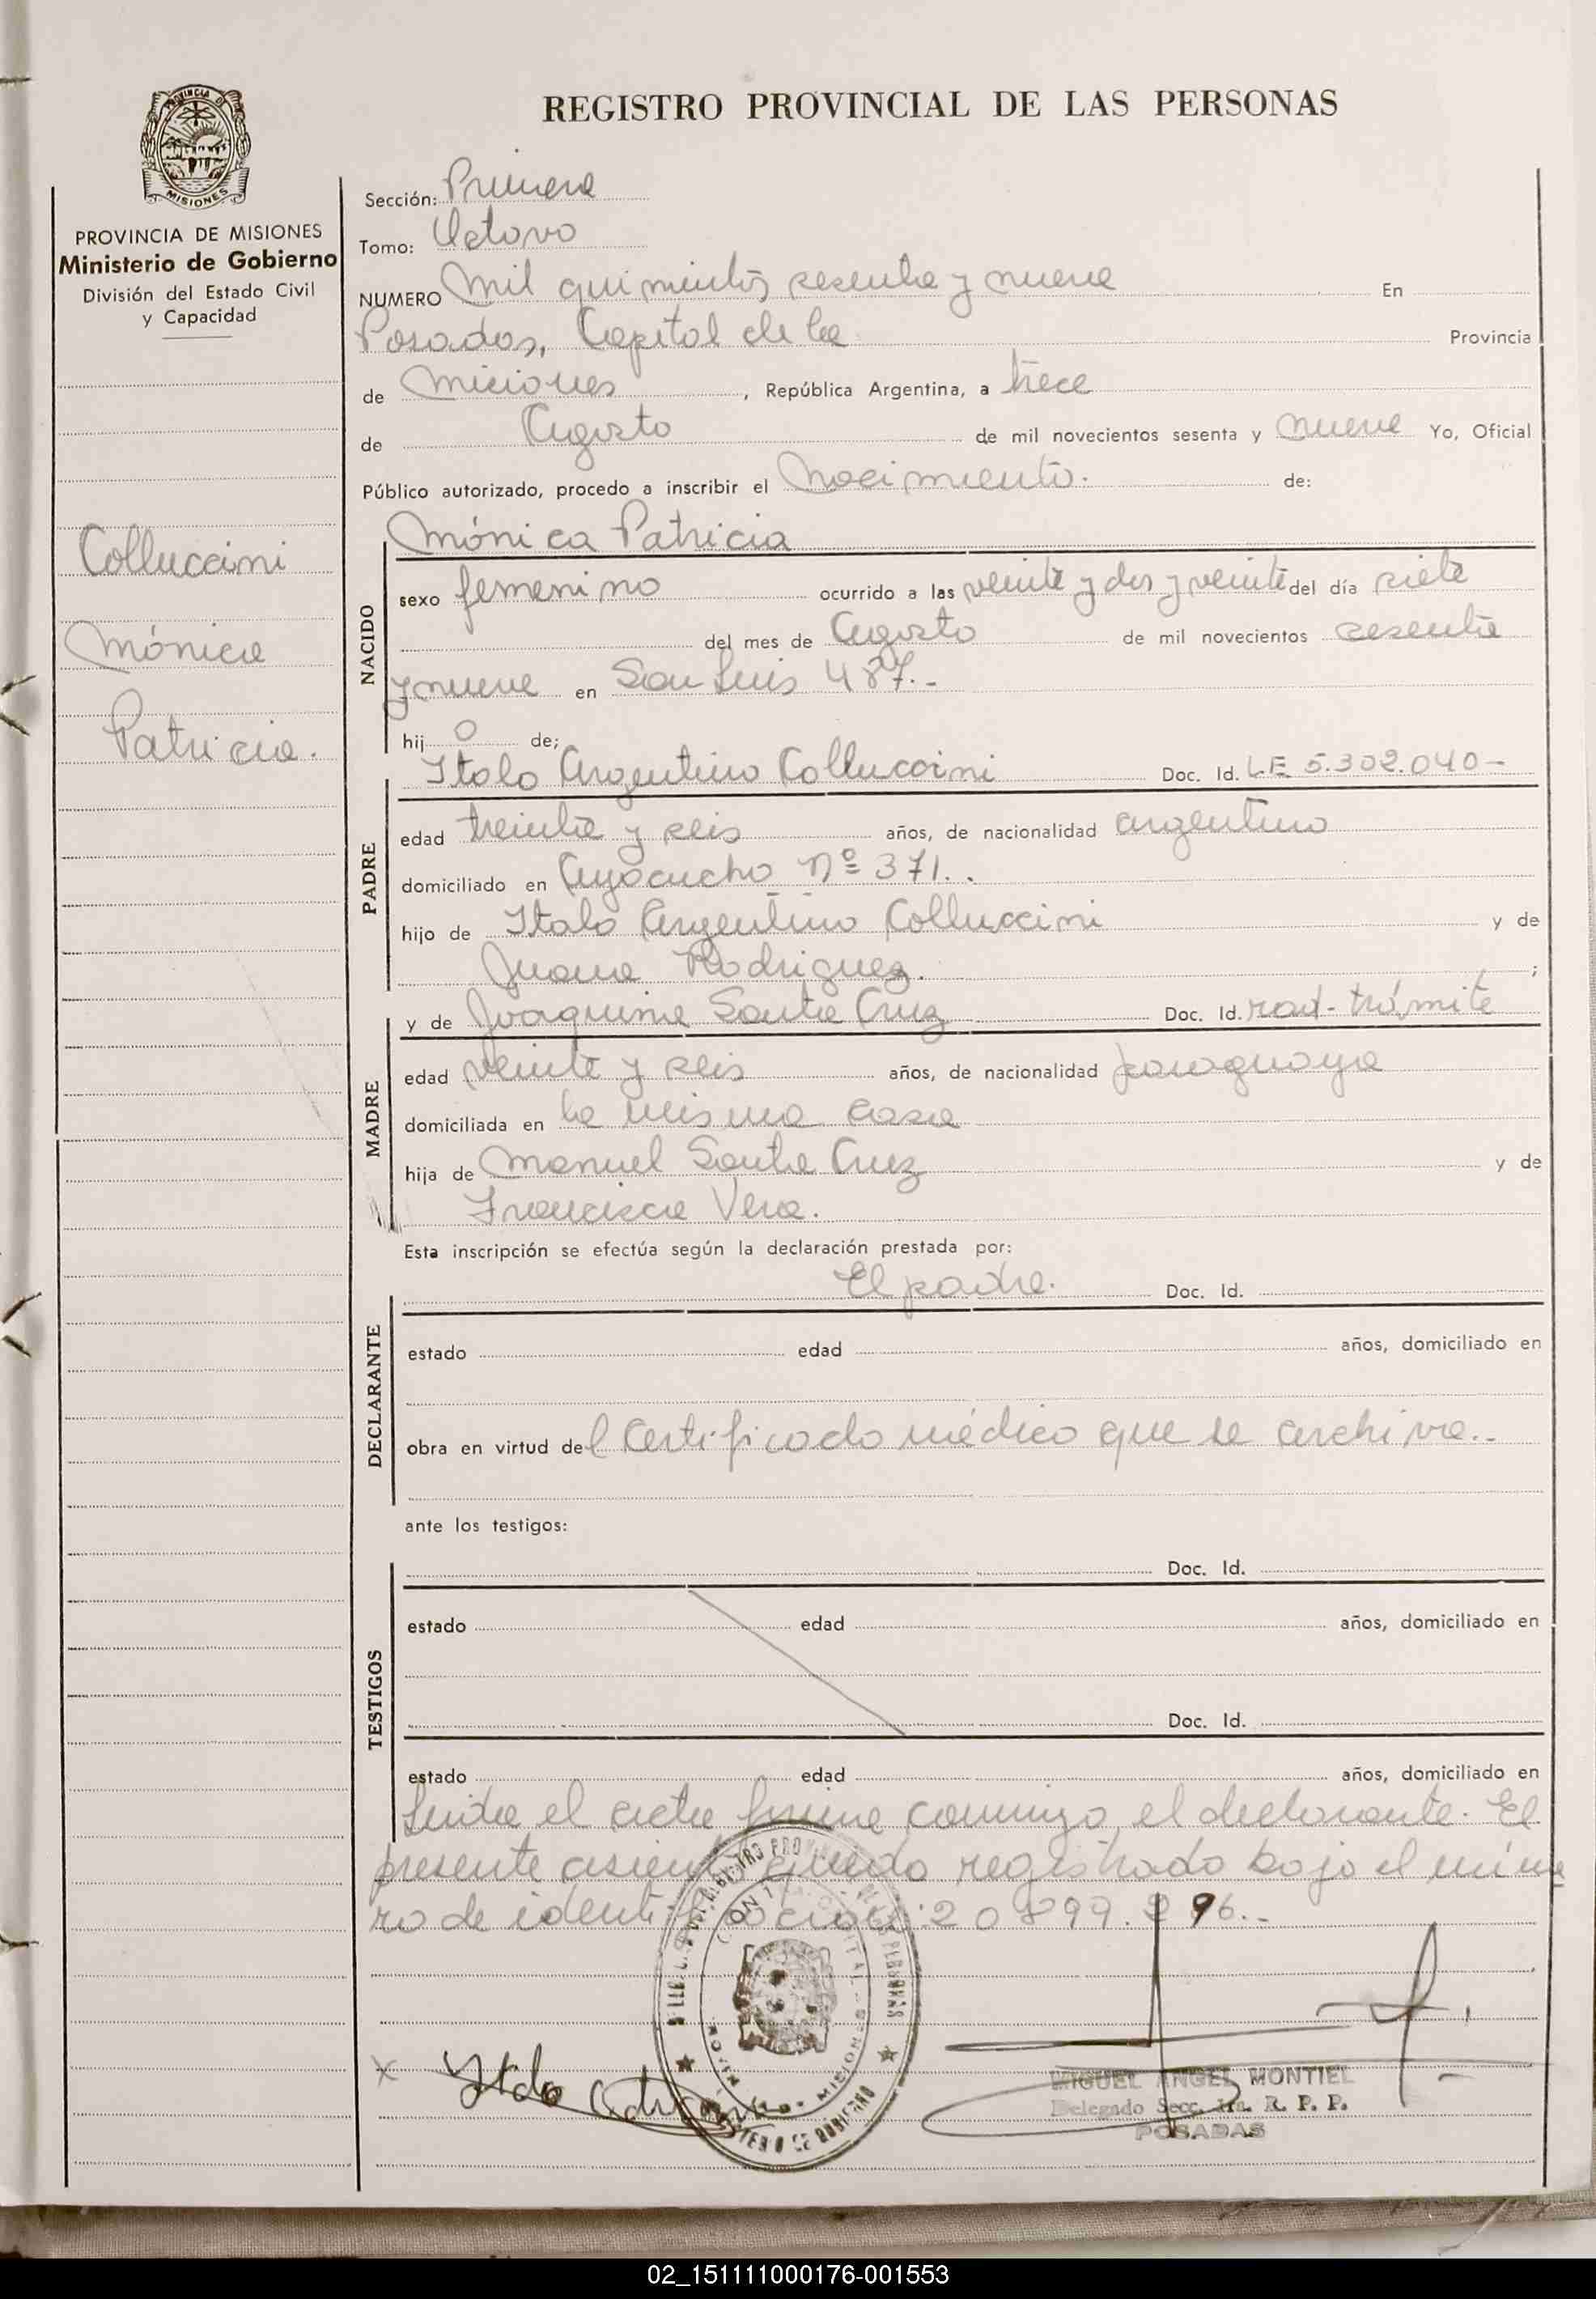 REGISTRO PROVINCIAL DE LAS PERSONAS
PROVINCIA DE
MISIONES
PROVINCIA DE MISIONES
Ministerio de Gobierno
División del Estado Civil
y Capacidad
Colluccini
Mónica
Patricia.
Sección: Primera
Tomo: Octavo
NUMERO Mil quinientos sesenta y nueve En
Posadas, Capital de la Provincia
de Misiones, República Argentina, a trece
de Agosto de mil novecientos sesenta y nueve Yo, Oficial
Público autorizado, procedo a inscribir el Nacimiento. de:
Mónica Patricia
NACIDO
sexo femenino ocurrido a las veinte y dos y veinte del día siete
del mes de Agosto de mil novecientos sesenta
y nueve en San Luis 487.-
hij o de;
Italo Argentino Colluccini Doc. Id. LE 5.302.040-
PADRE
edad treinta y seis años, de nacionalidad argentino
domiciliado en Ayacucho Nº 371..
hijo de Italo Argentino Colluccini y de
Juana Rodriguez. ;
y de Joaquina Santa Cruz Doc. Id. rad-trámite
MADRE
edad veinte y seis años, de nacionalidad paraguaya
domiciliada en la misma casa
hija de Manuel Santa Cruz y de
Francisca Vera.
Esta inscripción se efectúa según la declaración prestada por:
El padre. Doc. Id.
DECLARANTE
estado edad años, domiciliado en
obra en virtud del Certificado médico que se archiva.-
ante los testigos:
Doc. Id.
TESTIGOS
estado edad años, domiciliado en
Doc. Id.
estado edad años, domiciliado en
Leida el acta firma conmigo, el declarante. El
presente asiento quedo registrado bajo el núme
ro de identificación: 20.899.296.-
x Italo
MIGUEL ANGEL MONTIEL
Delegado Secc. 1ra. R. P. P.
POSADAS
02_151111000176-001553